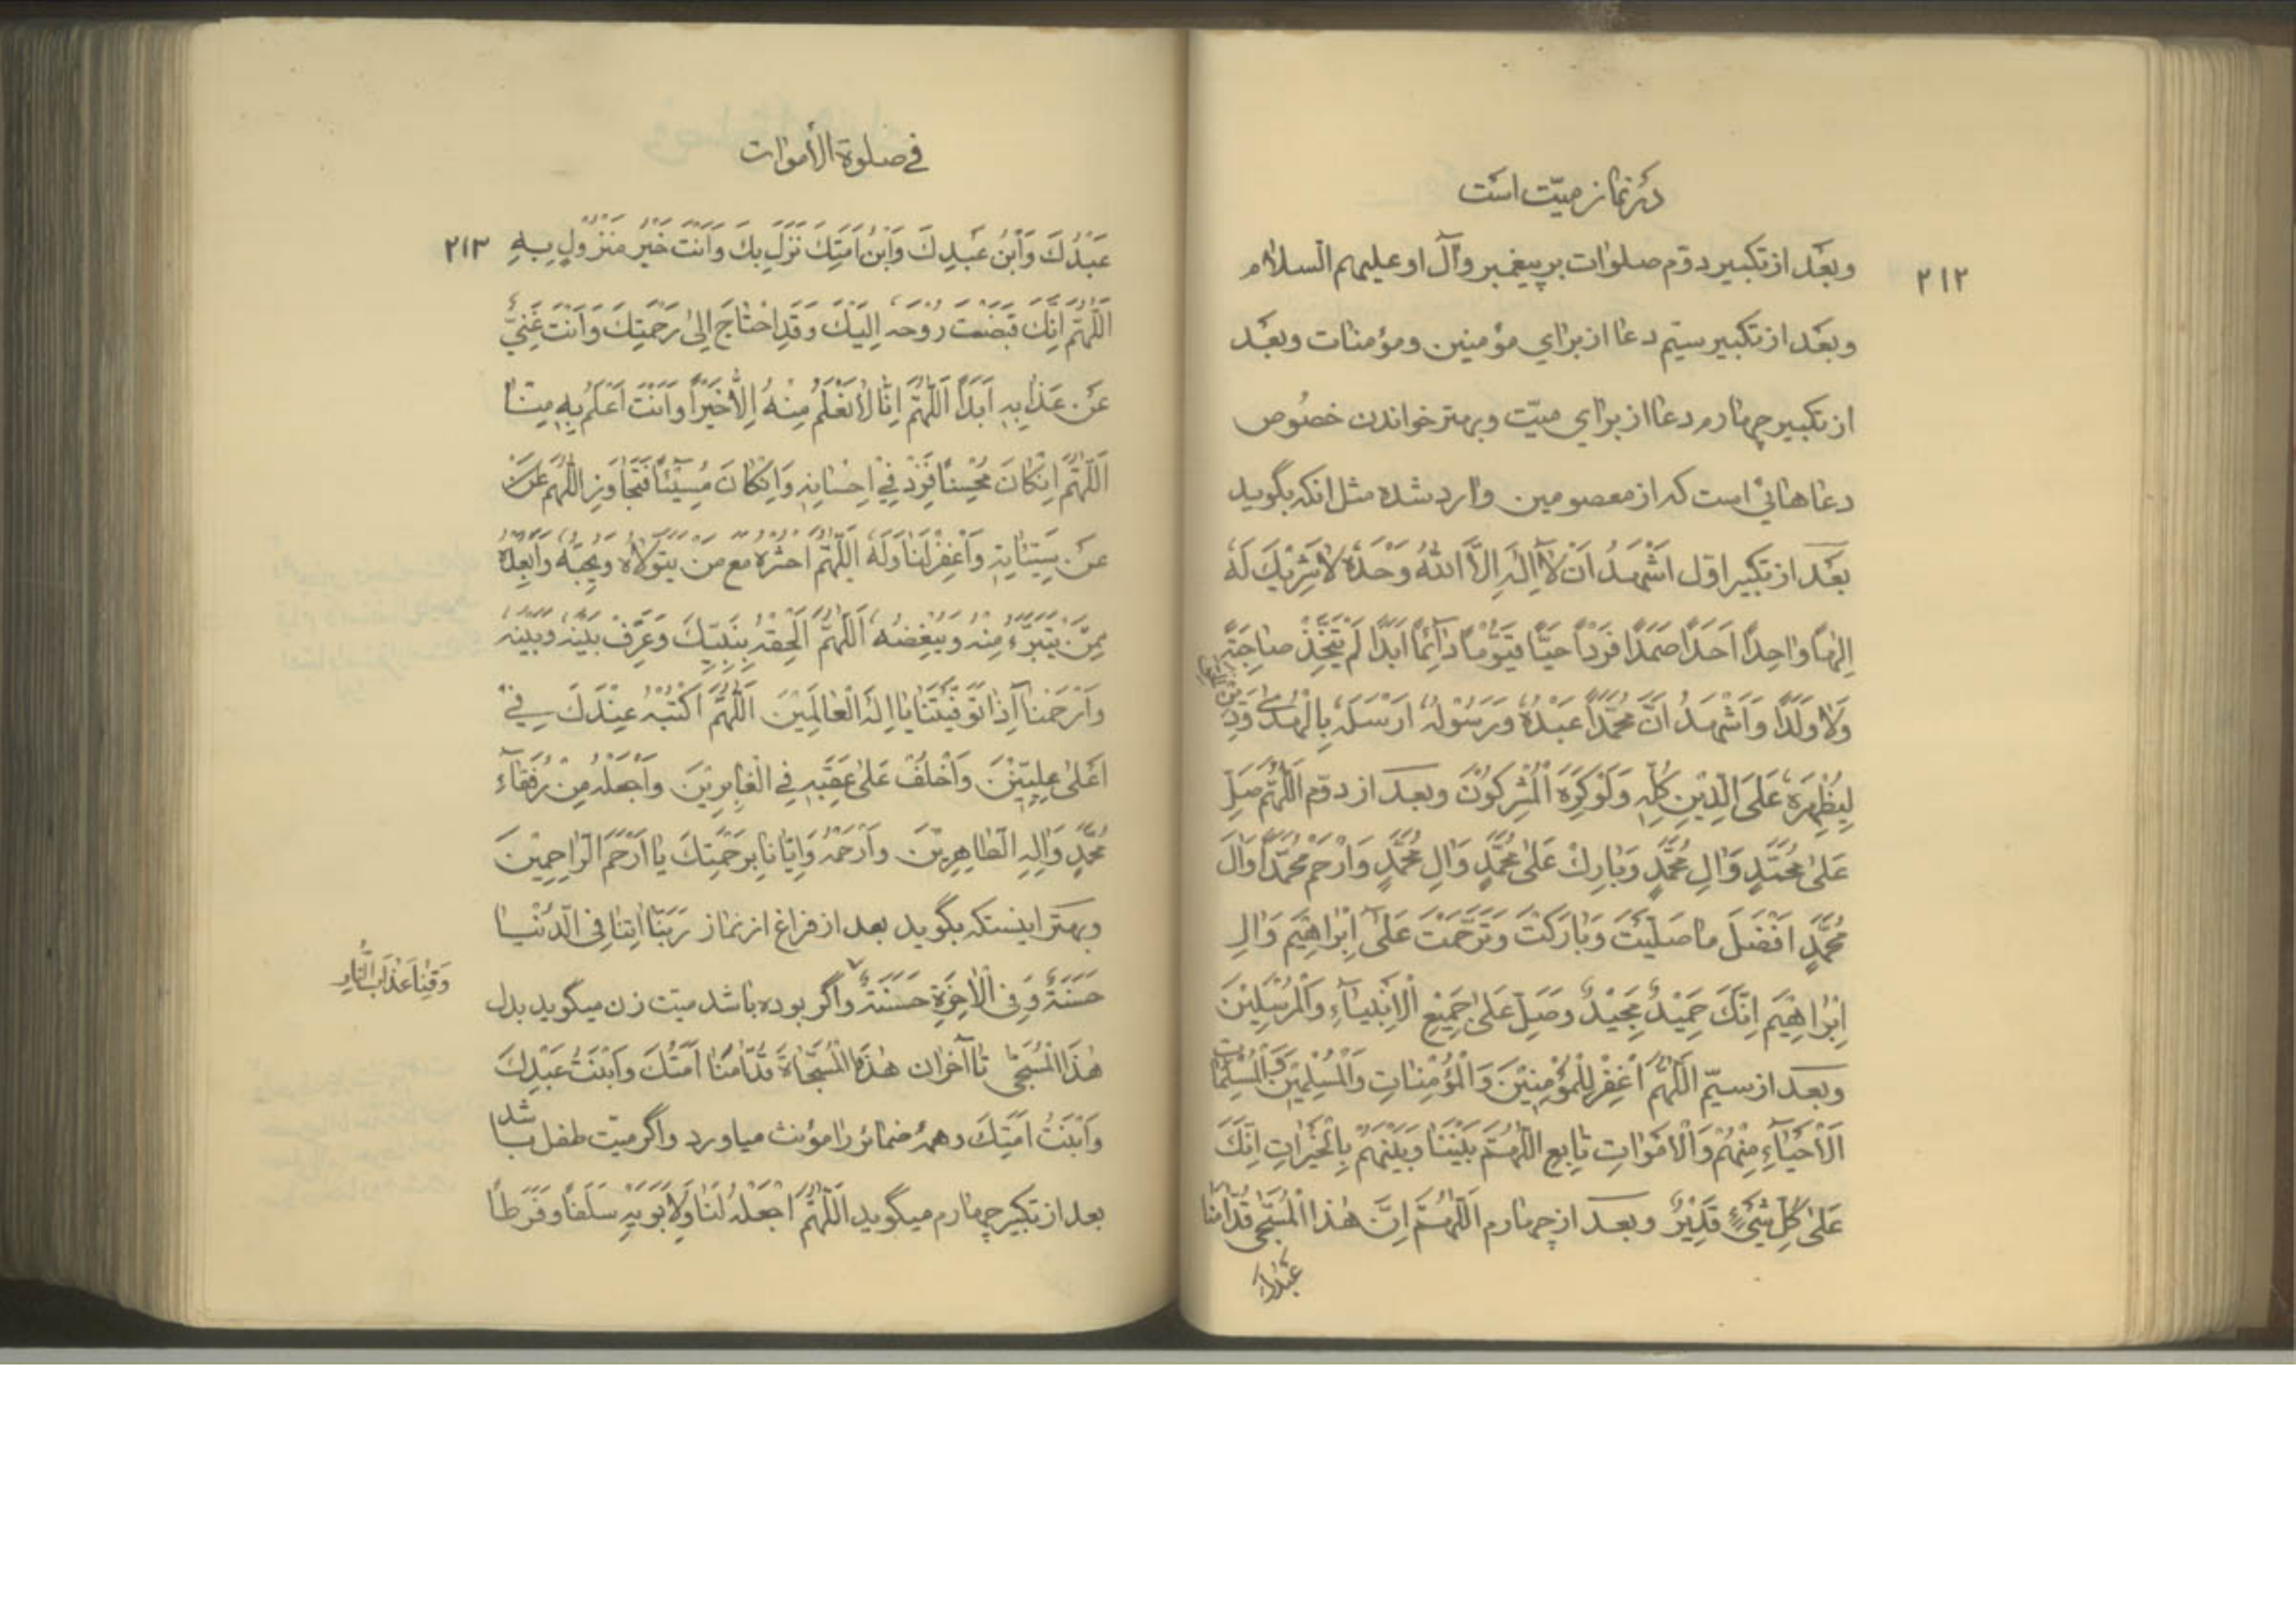 در نماز میّت است
۲۱۲
وبعَد از تکبیر دوّم صلوات بر پیغمبر وآل او علیهم السلام
وبعَد از تکبیر سیّم دعا از برای مؤمنین ومؤمنات وبعَد
از تکبیر چهارم دعا از برای میّت وبهتر خواندن خصُوص
دعاهائی است که از معصومین وارد شده مثل انکه بگوید
بعَد از تکبیر اوّل اَشْهَدُ اَنْ لاٰ اِلٰهَ اِلَّا اللهُ وَحْدَهُ لاٰ شَرِیْكَ لَهُ
اِلٰهًا وٰاحِدًا اَحَدًا صَمَدًا فَرْدًا حَیًّا قَیُّوْمًا دٰائِمًا اَبَدًا لَمْ یَتَّخِذْ صٰاحِبَةً
وَلاٰ وَلَدًا وَاَشْهَدُ اَنَّ مُحَمَّدًا عَبْدُهُ وَرَسُوْلُهُ اَرْسَلَهُ بِالْهُدٰی وَدِیْنِ الْحَقِّ
لِیُظْهِرَهُ عَلَی الدِّیْنِ کُلِّهِ وَلَوْ کَرِهَ الْمُشْرِکُوْنَ وبعـد از دوّم اَللّٰهُمَّ صَلِّ
عَلٰی مُحَمَّدٍ وَاٰلِ مُحَمَّدٍ وَبٰارِكْ عَلٰی مُحَمَّدٍ وَاٰلِ مُحَمَّدٍ وَارْحَمْ مُحَمَّدًا وَاٰلَ
مُحَمَّدٍ اَفْضَلَ مٰا صَلَّیْتَ وَبٰارَکْتَ وَتَرَحَّمْتَ عَلٰی اِبْرٰاهِیْمَ وَاٰلِ
اِبْرٰاهِیْمَ اِنَّكَ حَمِیْدٌ مَجِیْدٌ وَصَلِّ عَلٰی جَمِیْعِ الْاَنْبِیٰاۤءِ وَالْمُرْسَلِیْنَ
وبعـد از سیّم اَللّٰهُمَّ اغْفِرْ لِلْمُؤْمِنِیْنَ وَالْمُؤْمِنٰاتِ وَالْمُسْلِمِیْنَ وَالْمُسْلِمٰاتِ
اَلْاَحْیٰاۤءِ مِنْهُمْ وَالْاَمْوٰاتِ تٰابِعِ اللّٰهُمَّ بَیْنَنٰا وَبَیْنَهُمْ بِالْخَیْرٰاتِ اِنَّكَ
عَلٰی کُلِّ شَیْءٍ قَدِیْرٌ وبعـد از چهارم اَللّٰهُمَّ اِنَّ هٰذَا الْمُسَجّٰی قُدّٰامَنٰا
عَبْدُكَ
في صلوة الأموات
۲۱۳
عَبْدُكَ وَابْنُ عَبْدِكَ وَابْنُ اَمَتِكَ نَزَلَ بِكَ وَاَنْتَ خَیْرُ مَنْزُوْلٍ بِهِ
اَللّٰهُمَّ اِنَّكَ قَبَضْتَ رُوْحَهُ اِلَیْكَ وَقَدِ احْتٰاجَ اِلٰی رَحْمَتِكَ وَاَنْتَ غَنِیٌّ
عَنْ عَذٰابِهِ اَبَدًا اَللّٰهُمَّ اِنّٰا لاٰ نَعْلَمُ مِنْهُ اِلَّا خَیْرًا وَاَنْتَ اَعْلَمُ بِهِ مِنّٰا
اَللّٰهُمَّ اِنْ کٰانَ مُحْسِنًا فَزِدْ فِیْ اِحْسٰانِهِ وَاِنْ کٰانَ مُسِیْئًا فَتَجٰاوَزِ اللّٰهُمَّ عَنْ
عَنْ سَیِّئٰاتِهِ وَاغْفِرْ لَنٰا وَلَهُ اَللّٰهُمَّ احْشُرْهُ مَعَ مَنْ یَتَوَلّٰاهُ وَیُحِبُّهُ وَاَبْعِدْهُ
مِمَّنْ یَتَبَرَّءُ مِنْهُ وَیُبْغِضُهُ اَللّٰهُمَّ اَلْحِقْهُ بِنَبِیِّكَ وَعَرِّفْ بَیْنَهُ وَبَیْنَهُ
وَارْحَمْنٰا اِذٰا تَوَفَّیْتَنٰا یٰا اِلٰهَ الْعٰالَمِیْنَ اَللّٰهُمَّ اکْتُبْهُ عِنْدَكَ فِیْ
اَعْلٰی عِلِّیِّیْنَ وَاخْلُفْ عَلٰی عَقِبِهِ فِی الْغٰابِرِیْنَ وَاجْعَلْهُ مِنْ رُفَقٰاۤءِ
مُحَمَّدٍ وَاٰلِهِ الطّٰاهِرِیْنَ وَارْحَمْهُ وَاِیّٰانٰا بِرَحْمَتِكَ یٰا اَرْحَمَ الرّٰاحِمِیْنَ
وبهتر اینستکه بگوید بعد از فراغ از نماز رَبَّنٰا اٰتِنٰا فِی الدُّنْیٰا
حَسَنَةً وَفِی الْاٰخِرَةِ حَسَنَةً واگر بوده باشد میّت زن میگوید بدل
وَقِنٰا عَذٰابَ النّٰارِ
هٰذَا الْمُسَجّٰی تا آخران هٰذِهِ الْمُسَجّٰاةَ قُدّٰامَنٰا اَمَتُكَ وَابْنَتُ عَبْدِكَ
وَابْنَتُ اَمَتِكَ وهمهٔ ضمائر را مؤنث میاورد واگر میّت طفل باشد
بعد از تکبیر چهارم میگوید اَللّٰهُمَّ اجْعَلْهُ لَنٰا وَلِاَبَوَیْهِ سَلَفًا وَفَرَطًا